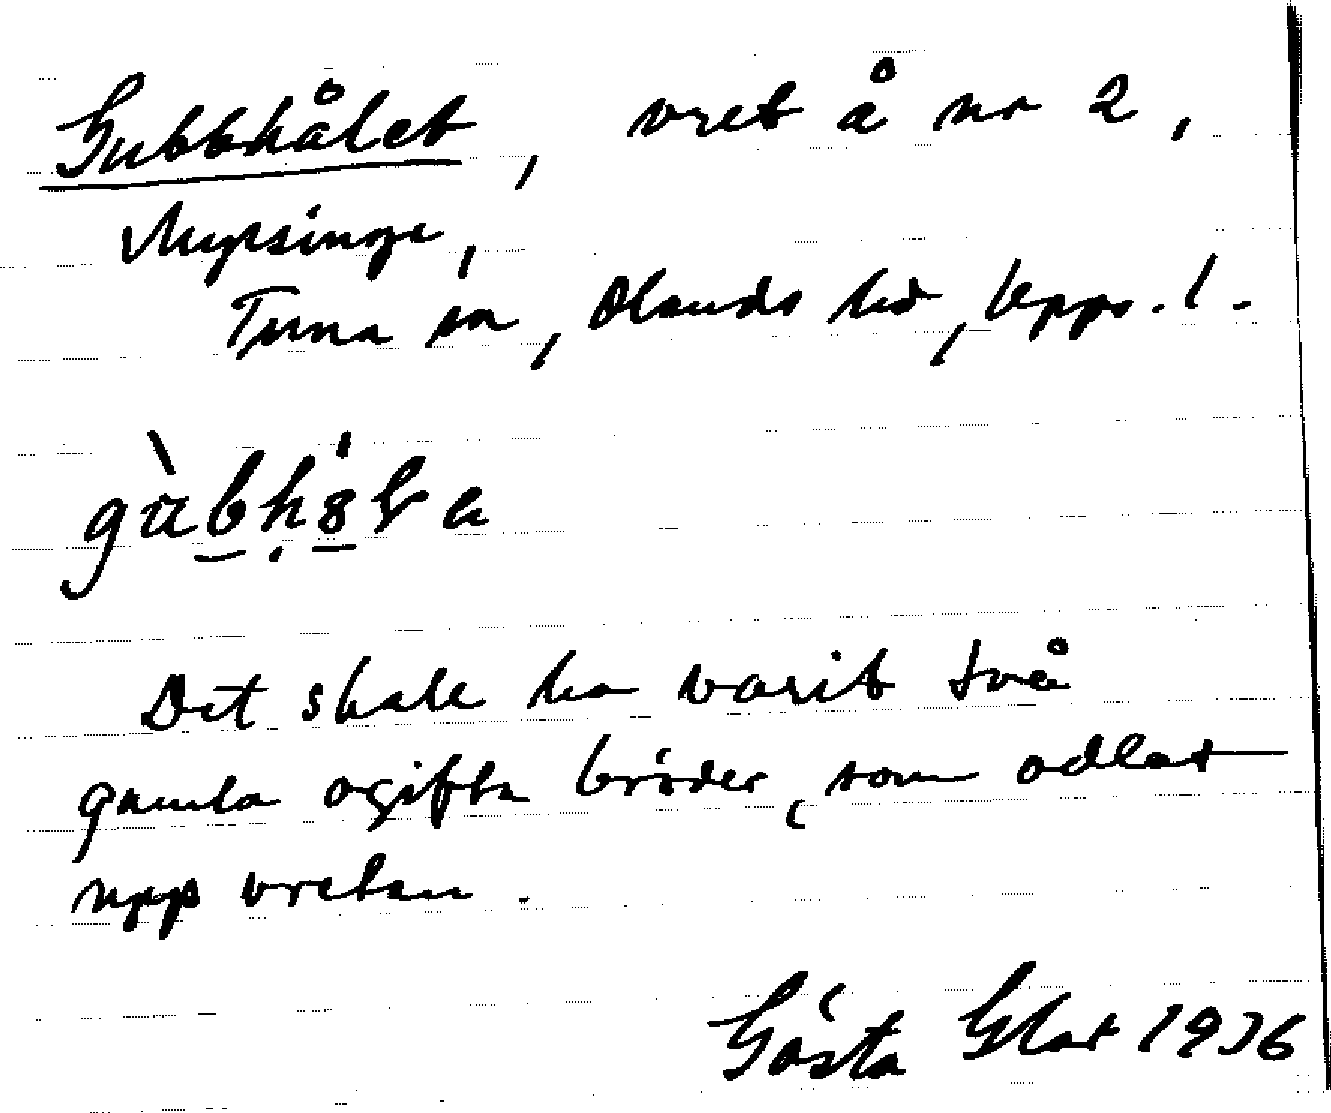 Gubbhålet, vret å nr 2,
Mysinge,
Tuna sn, Olands hd, Upps. l.
Det skall ha varit två
gamla ogifta bröder, som odlat
upp vreten.
Gösta Glat 1936